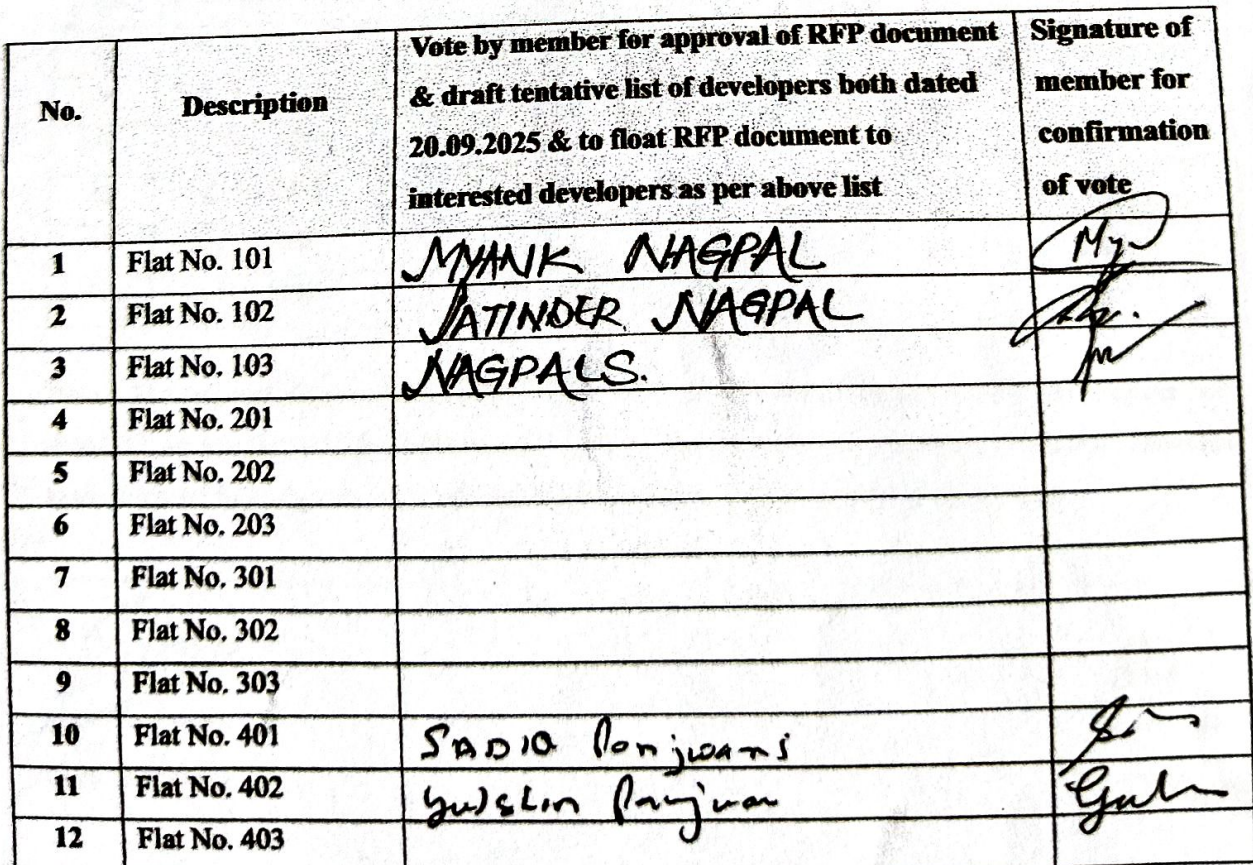 No.
Description
Vote by member for approval of RFP document
& draft tentative list of developers both dated
20.09.2025 & to float RFP document to
interested developers as per above list
Signature of
member for
confirmation
of vote
1 Flat No. 101 MYANK NAGPAL
2 Flat No. 102 JATINDER NAGPAL
3 Flat No. 103 NAGPALS.
4 Flat No. 201
5 Flat No. 202
6 Flat No. 203
7 Flat No. 301
8 Flat No. 302
9 Flat No. 303
10 Flat No. 401 SADIQ
11 Flat No. 402
12 Flat No. 403